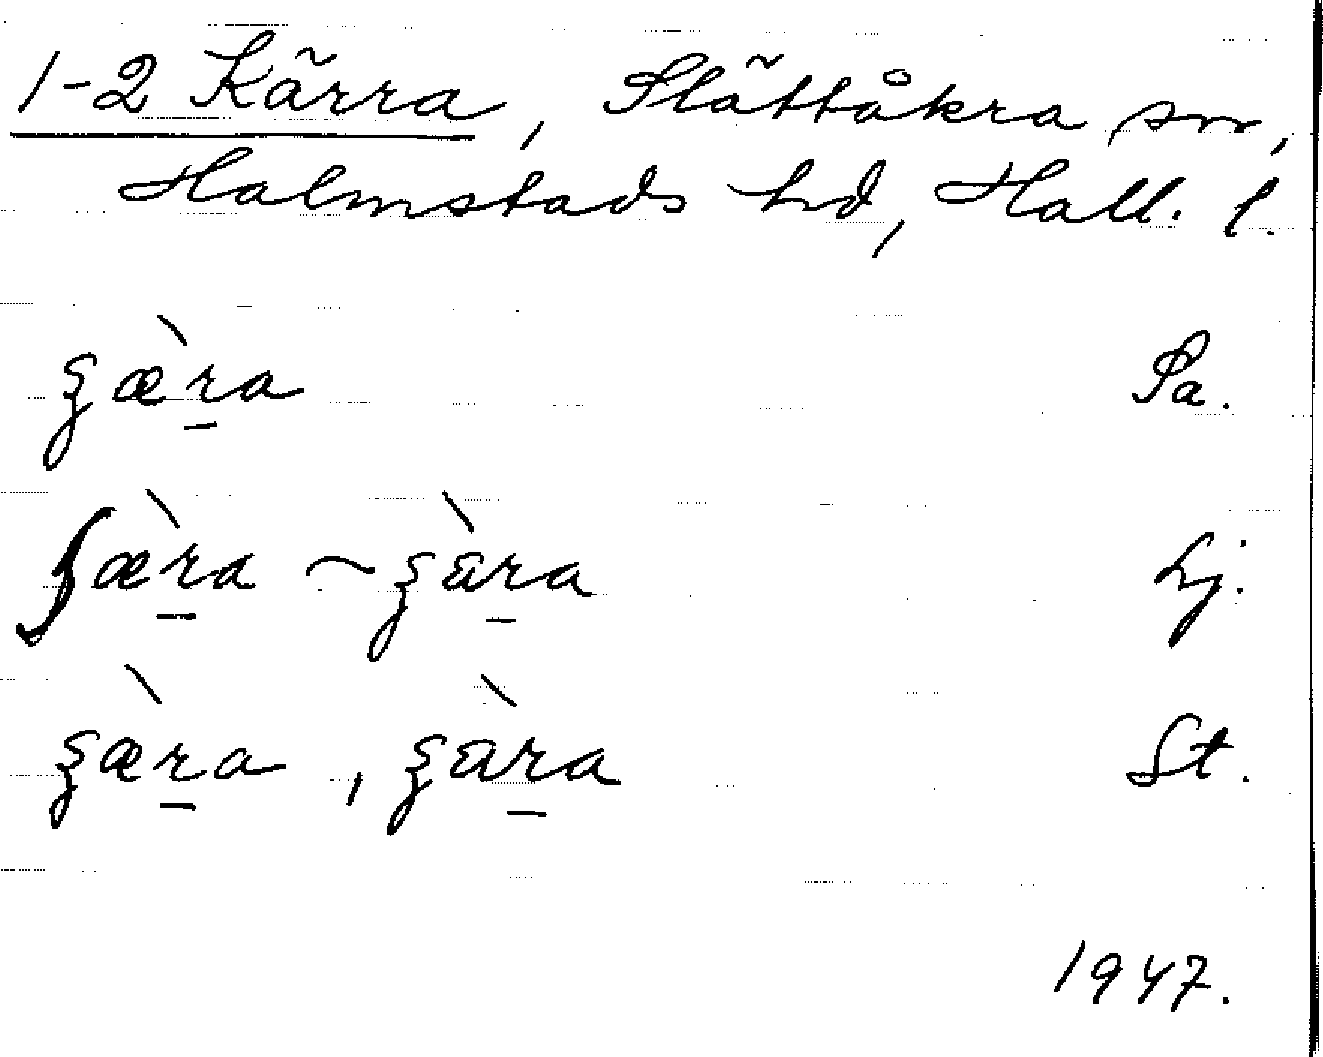 1-2 Kärra, Slättåkra sn,
Halmstads hd, Hall. l.
ξæ̀r̲a Pa.
ʃæ̀r̲a ~ ξàr̲a Lj.
ξæ̀r̲a, ξàr̲a St.
1947.